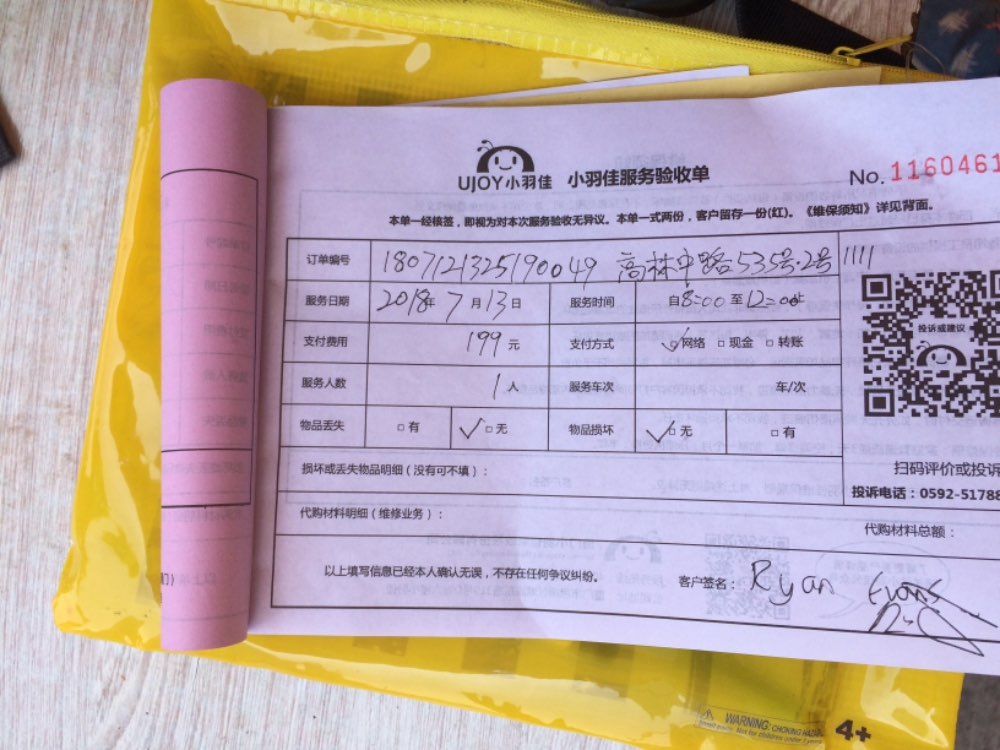 UJOY小羽佳 小羽佳服务验收单
No. 1160461
本单一经核签，即视为对本次服务验收无异议。本单一式两份，客户留存一份(红)。《维保须知》详见背面。
订单编号 1807121325190049 高林中路535号.2号 1111
服务日期 2018年 7月13日 服务时间 自8:00至12:00止
支付费用 199元 支付方式 ✓网络 □现金 □转账
服务人数 1人 服务车次 车/次
物品丢失 □有 ✓□无 物品损坏 ✓□无 □有
投诉或建议
损坏或丢失物品明细（没有可不填）：
扫码评价或投诉
投诉电话：0592-51788
代购材料明细（维修业务）：
代购材料总额：
以上填写信息已经本人确认无误，不存在任何争议纠纷。
客户签名：Ryan Evans
WARNING: CHOKING HAZARD
Small parts. Not for children under 3 years
4+